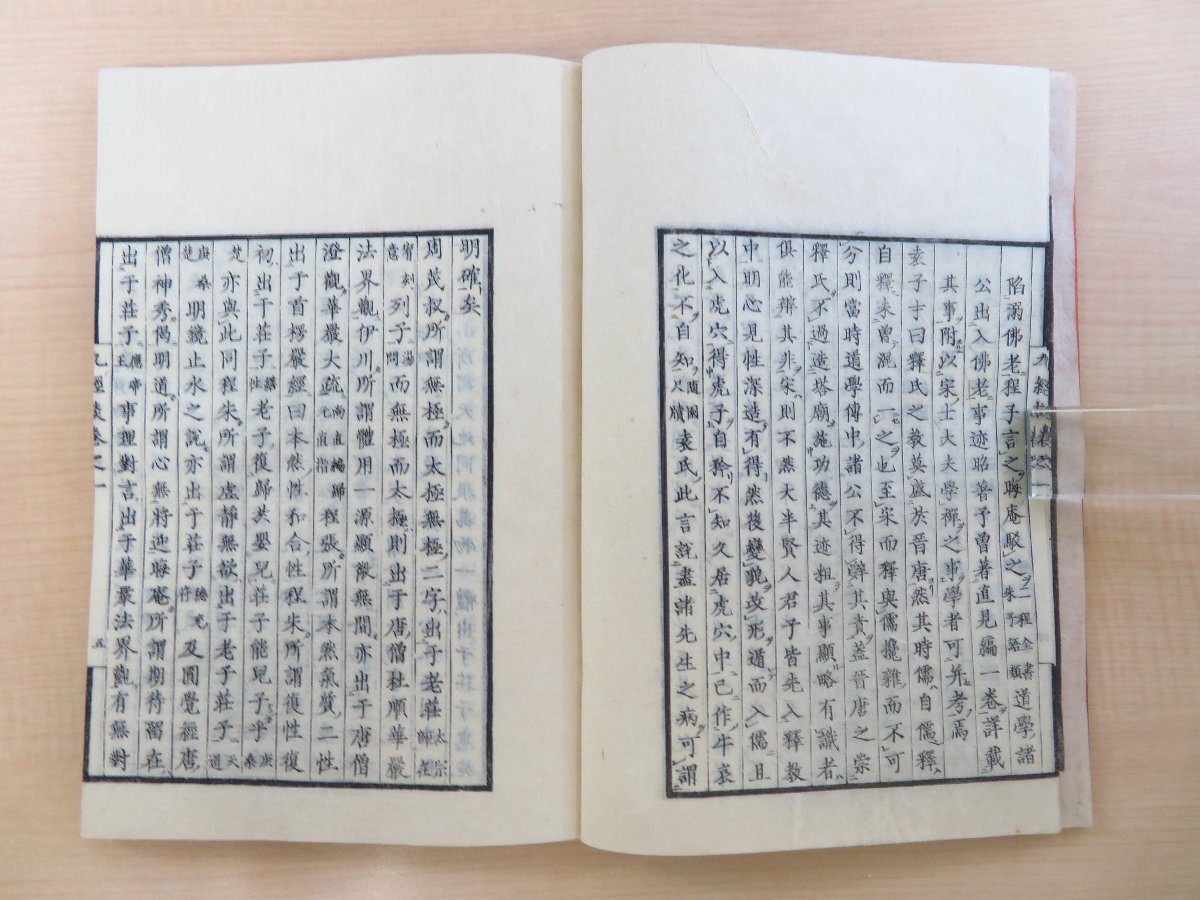 陷溺佛老程子言之晦庵駁之二程全書朱子語類道學諸
公出入佛老事迹昭著予曾著直見編一卷詳載
其事附以宋士大夫學禪之事學者可并考焉
袁子才曰釋氏之教莫盛於晉唐然其時儒自儒釋
自釋未曾混而一之也至宋而釋與儒攙雜而不可
分則當時道學傳中諸公不得辭其責蓋晉唐之崇
釋氏不過造塔廟施功德其迹粗其事顯略有識者
俱能辨其非宋則不然大半賢人君子皆先入釋教
中明心見性深造有得然後變貌改形遁而入儒且
以入虎穴得虎子自矜不知久居虎穴中已作牛哀
之化不自知隨園尺牘袁氏此言說盡諸先生之病可謂
九經談卷之一
明確矣
周茂叔所謂無極而太極無極二字出于老莊大宗師在
宥刻意列子湯問而無極而太極則出于唐僧杜順華嚴
法界觀伊川所謂體用一源顯微無間亦出于唐僧
澄觀華嚴大疏尚直編歸元直指程張所謂本然氣質二性
出于首楞嚴經曰本然性和合性程朱所謂復性復
初出于莊子繕性老子復歸於嬰兒莊子能兒子乎庚桑
楚亦與此同程朱所謂虛靜無欲出于老子莊子天道
庚桑楚明鏡止水之說亦出于莊子德充符及圓覺經唐
僧神秀偈明道所謂心無將迎晦庵所謂期待留在
出于莊子應帝王事理對言出于華嚴法界觀有無對
九經談卷之一
五